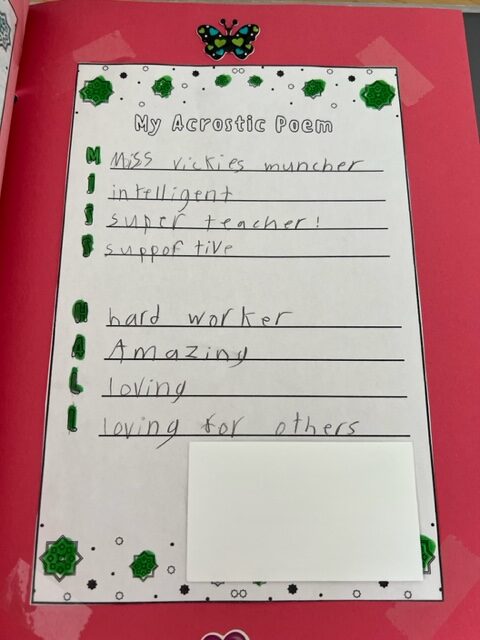 My Acrostic Poem
M Miss vickies muncher
I intelligent
S super teacher!
S supportive
H hard worker
A Amazing
L loving
I loving for others